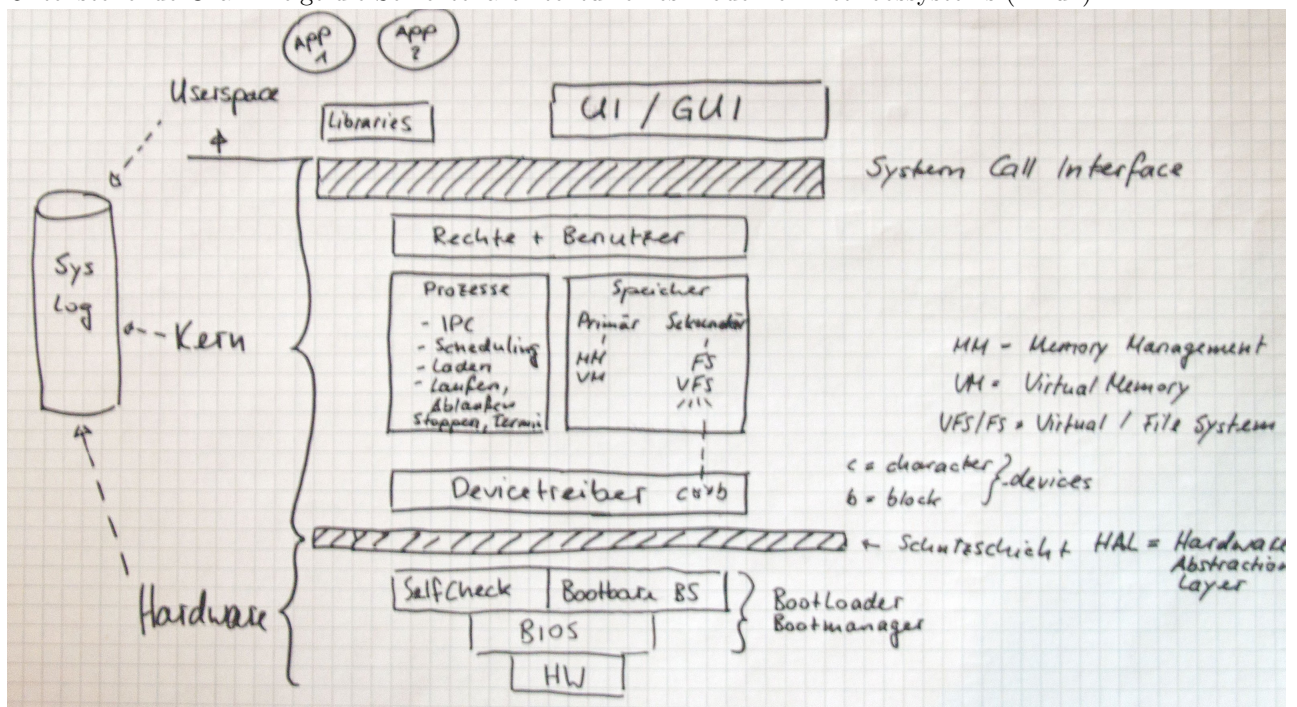 App
1
App
2
Userspace
Libraries
UI / GUI
System Call Interface
Rechte + Benutzer
Sys
Log
Kern
Prozesse
- IPC
- Scheduling
- Laden
- Laufen,
Ablaufen
Stoppen, Termin
Speicher
Primär Sekundär
MM FS
VM VFS
MM - Memory Management
VM = Virtual Memory
VFS/FS = Virtual / File System
Devicetreiber
c = character
b = block
devices
Schutzschicht HAL = Hardware
Abstraction
Layer
Hardware
SelfCheck Bootbare BS
BIOS
HW
BootLoader
Bootmanager